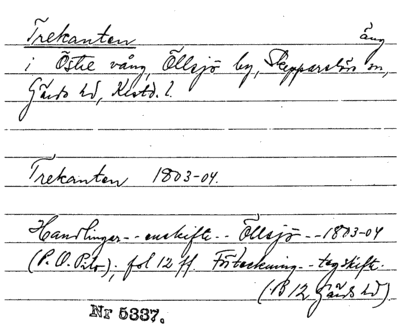 Trekanten äng
i Östre vång, Öllsjö by, Skepparslövs sn,
Gärds hd, Kristd. l.
Trekanten 1803-04.
Handlingar -- enskifte -- Öllsjö -- 1803-04
fol 12 ff. Förteckning -- tegskifte.
(B 12 Gärds hd)
Nr 5337.